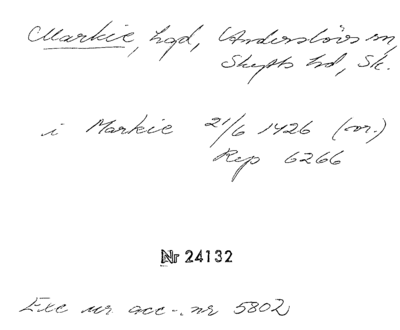 Markie, hgd, Anderslövs sn,
Skytts hd, Sk.
i Markie 21/6 1426 (or.)
Rep 6266
Nr 24132
Exc ur acc-nr 5802